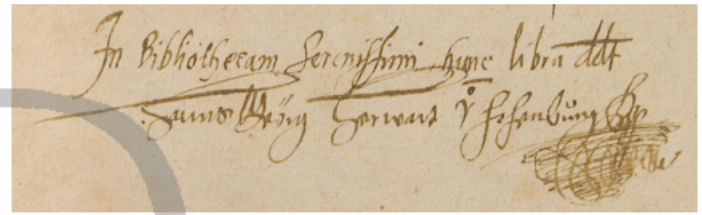 In Bibliothecam Serenissimi hunc libru ddt
Hanns Georg Herwart v Hohenburg